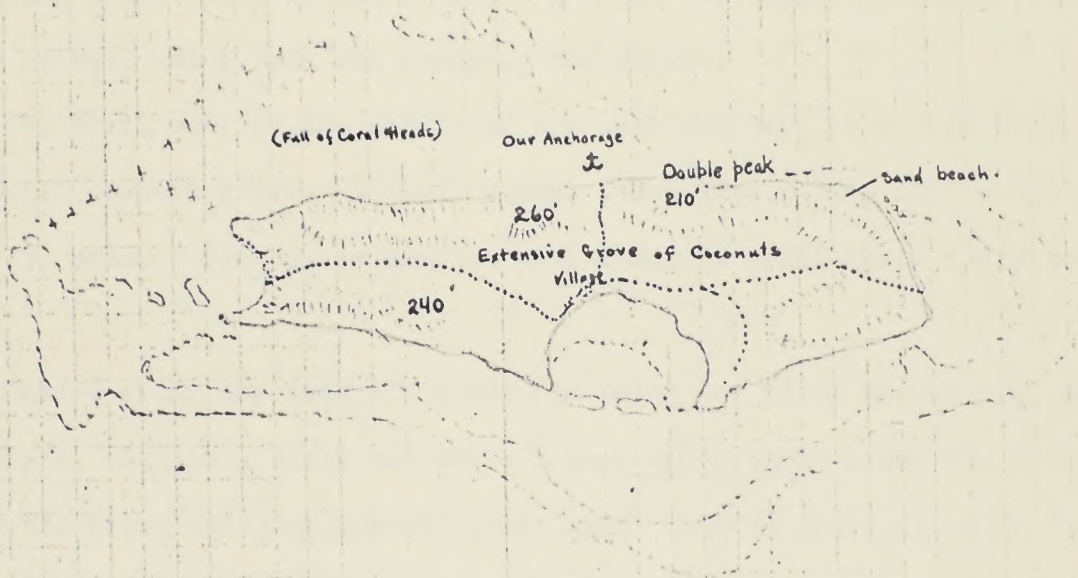 (Full of Coral Heads)
Our Anchorage
Double peak
210'
Sand beach.
260'
Extensive Grove of Coconuts
Village
240'